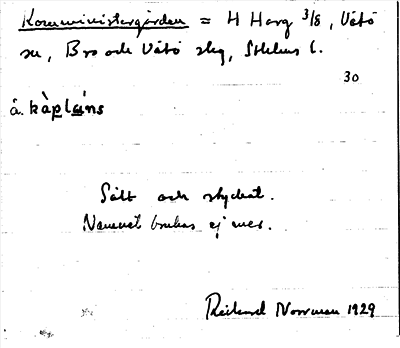 Kommunistergården = 4 Harg 3/8, Vätö
sn, Bro och Vätö skg, Sthlms l.
30
å. kàpláns
Sålt och styckat.
Namnet brukas ej mer.
Rickard Norrman 1929